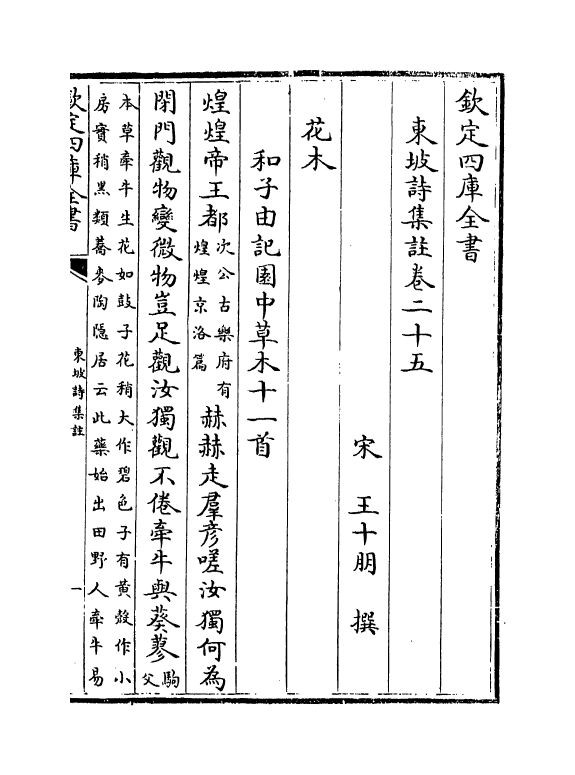 欽定四庫全書
東坡詩集註卷二十五
宋 王十朋 撰
花木
和子由記園中草木十一首
煌煌帝王都次公古樂府有煌煌京洛篇赫赫走羣彦嗟汝獨何為
閉門觀物變微物豈足觀汝獨觀不倦牽牛與葵蓼駒父
本草牽牛生花如鼓子花稍大作碧色子有黄殼作小
房實稍黑類蕎麥陶隠居云此藥始出田野人牽牛易
欽定四庫全書
東坡詩集註
一